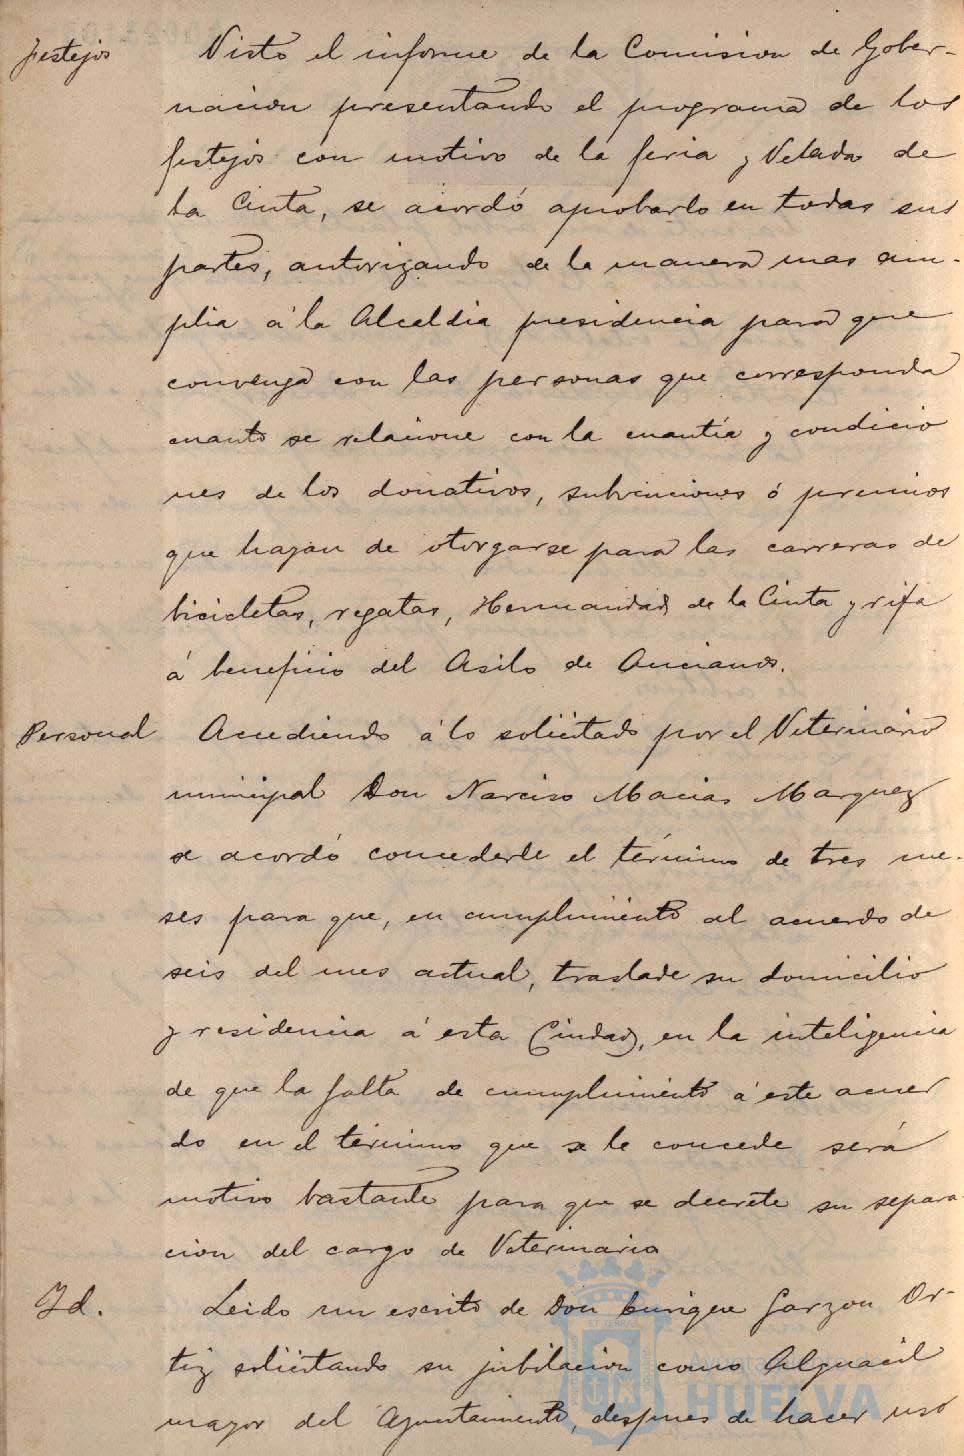 Festejos Visto el informe de la Comision de Gober-
nacion presentando el programa de los
festejos con motivo de la feria y Velada de
la Cinta, se acordó aprobarlo en todas sus
partes, autorizando de la manera mas am-
plia á la Alcaldia presidencia para que
convenga con las personas que corresponda
cuanto se relacione con la cuantía y condicio
nes de los donativos, subvenciones ó premios
que hayan de otorgarse para las carreras de
bicicletas, regatas, Hermandad de la Cinta y rifa
á beneficio del Asilo de Ancianos.
Personal Accediendo á lo solicitado por el Veterinario
municipal Don Narciso Macias Marquez
se acordó concederle el término de tres me-
ses para que, en cumplimiento al acuerdo de
seis del mes actual, traslade su domicilio
y residencia á esta Ciudad, en la inteligencia
de que la falta de cumplimiento á este acuer
do en el término que se le concede será
motivo bastante para que se decrete su separa-
cion del cargo de Veterinario
Id. Leido un escrito de Don Enrique Garzon Or-
tiz solicitando su jubilacion como Alguacil
mayor del Ayuntamiento, despues de hacer uso
HUELVA